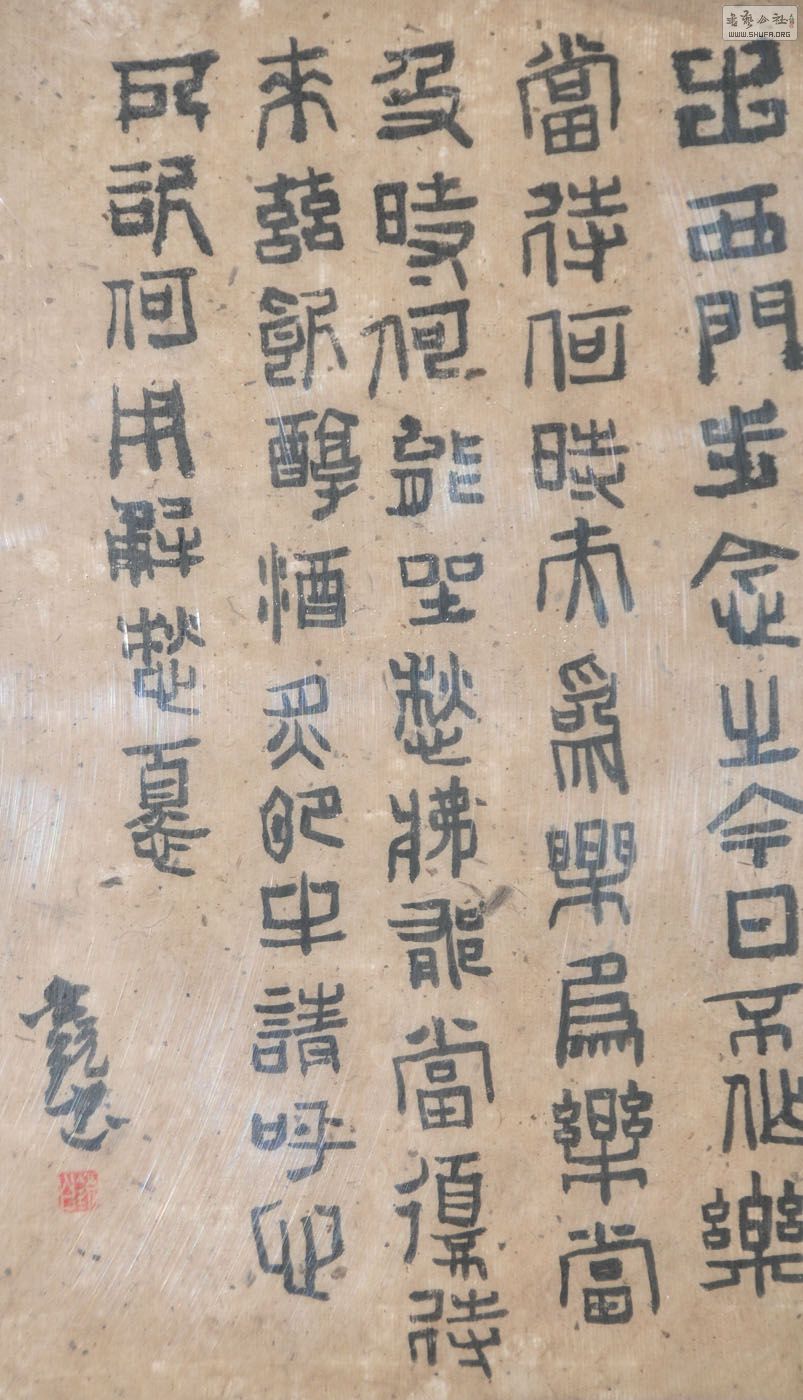 出西門步念之今日不作樂
當待何時夫為樂為樂當
及時何能坐愁怫鬱當復待
來茲飲醇酒炙肥牛請呼心
所何用解愁憂
書藝公社
WWW.SHUFA.ORG